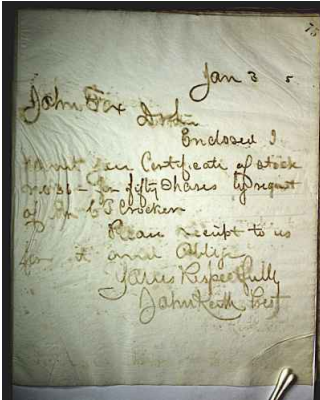 75
Jan 3 5
John Fox
Enclosed I
you Certificate of Stock
No 36 - for fifty Shares by request
of Mr C T Crocker
Please receipt to us
for it and Oblige
Yours Respectfully
John Keith